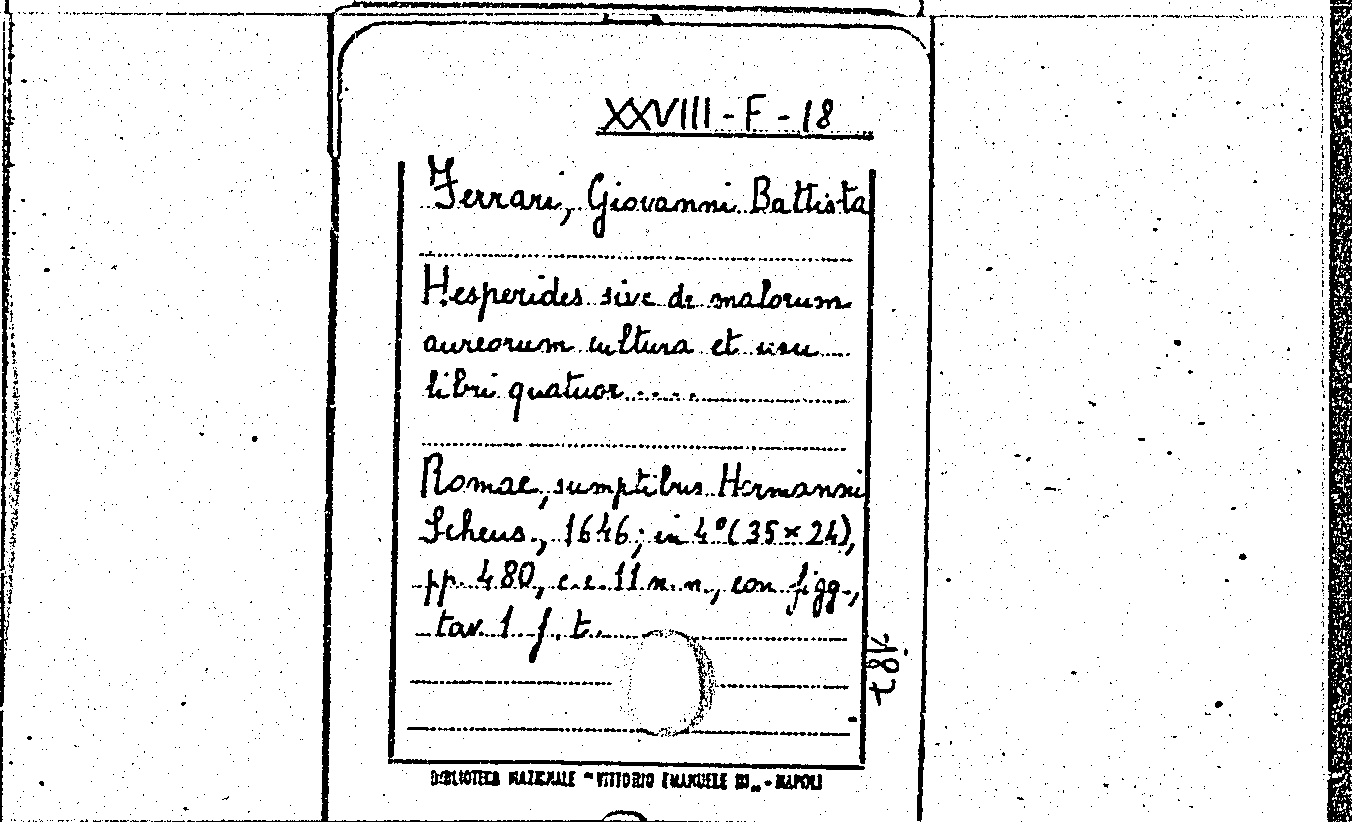 XXVIII - F - 18
Ferrari, Giovanni Battista
Hesperides sive de malorum
aureorum cultura et usu
libri quatuor.....
Romae, sumptibus Hermanni
Scheus., 1646; in 4° (35 x 24),
pp. 480, c.c. 11 n. n., con figg.,
tav. 1 f. t.
187
BIBLIOTECA NAZIONALE "VITTORIO EMANUELE III" - NAPOLI